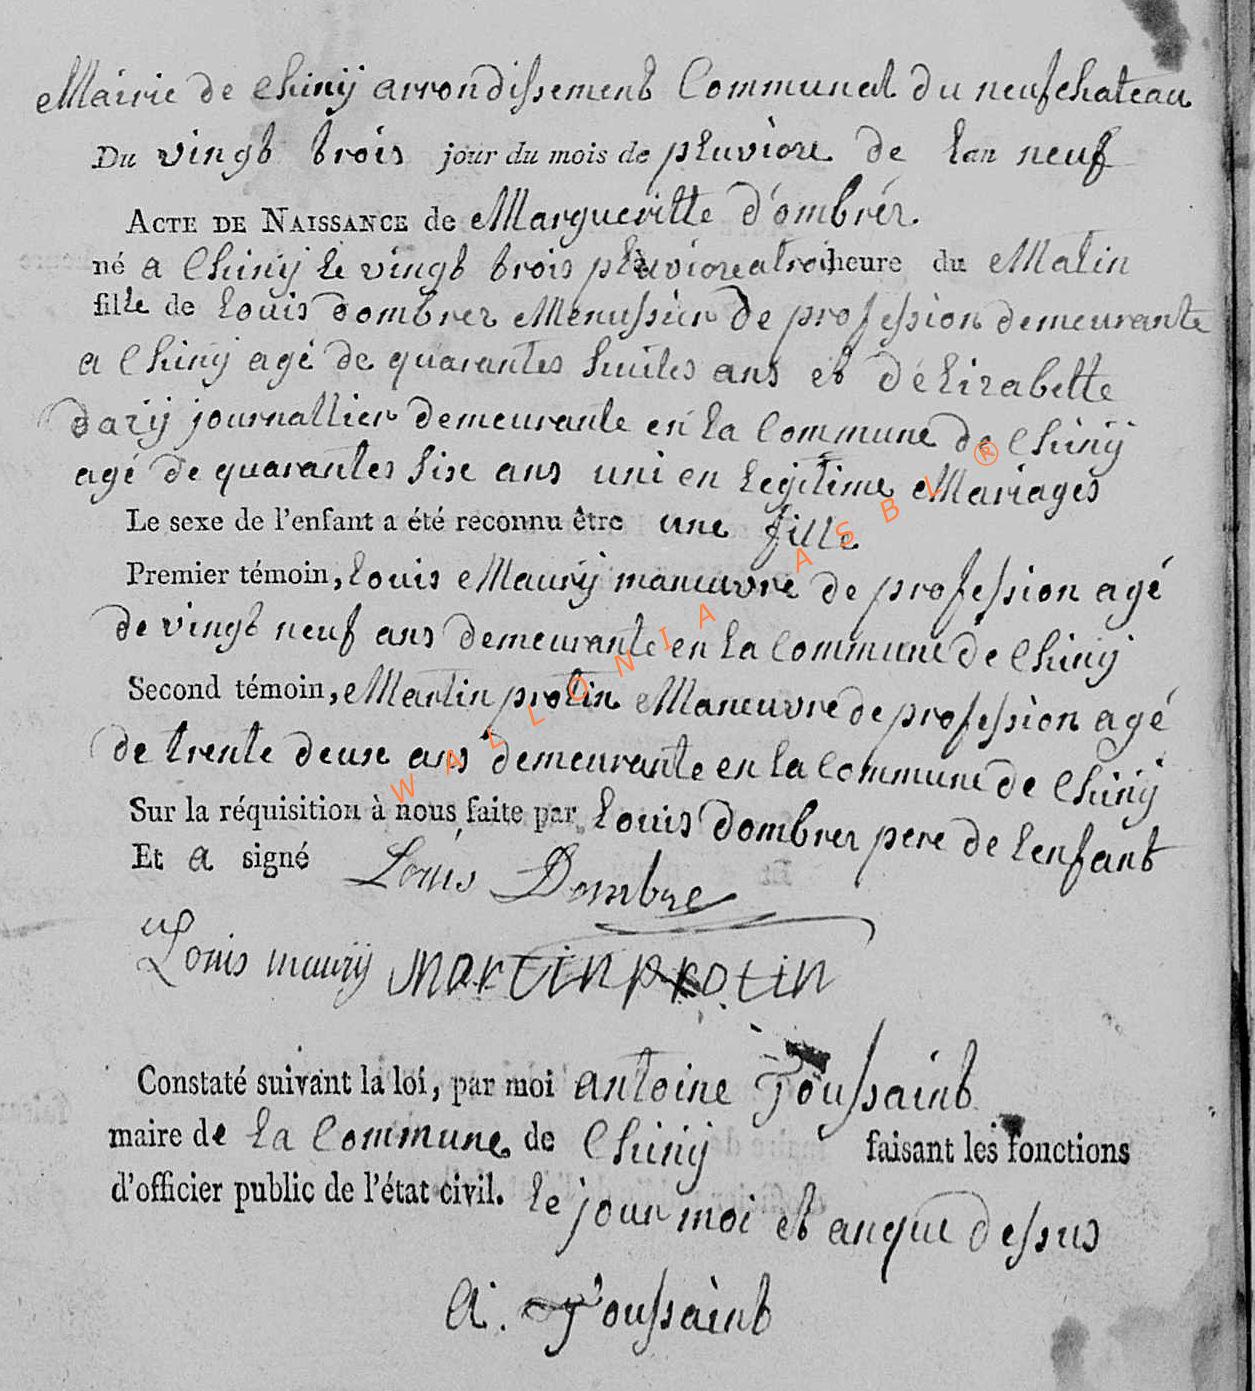 Mairie de Chiny arrondissement Communal du neufchateau
Du vingt trois jour du mois de pluviore de lan neuf
ACTE DE NAISSANCE de Margueritte d'ombrér.
né a Chiny le vingt trois pluviore a trois heure du Matin
fille de Louis dombrer Menussier de profession demeurante
a Chiny agé de quarantes huites ans et délizabette
dazij journallier demeurante en la Commune de Chiny
agé de quarantes six ans uni en legitime Mariages
Le sexe de l'enfant a été reconnu être une fille
Premier témoin, Louis Maurij manuvre de profession agé
de vingt neuf ans demeurante en la Commune de Chiny
Second témoin, Martin protin Maneuvre de profession agé
de trente deux ans demeurante en la Commune de Chiny
Sur la réquisition à nous faite par Louis dombrer pere de lenfant
Et a signé Louis Dombre
Louis maurij MARTIN PROTIN
Constaté suivant la loi, par moi antoine Toussaint
maire de la Commune de Chiny faisant les fonctions
d'officier public de l'état civil. le jour moi et anque dessus
A. Toussaint
WALLONIA ASBL ®